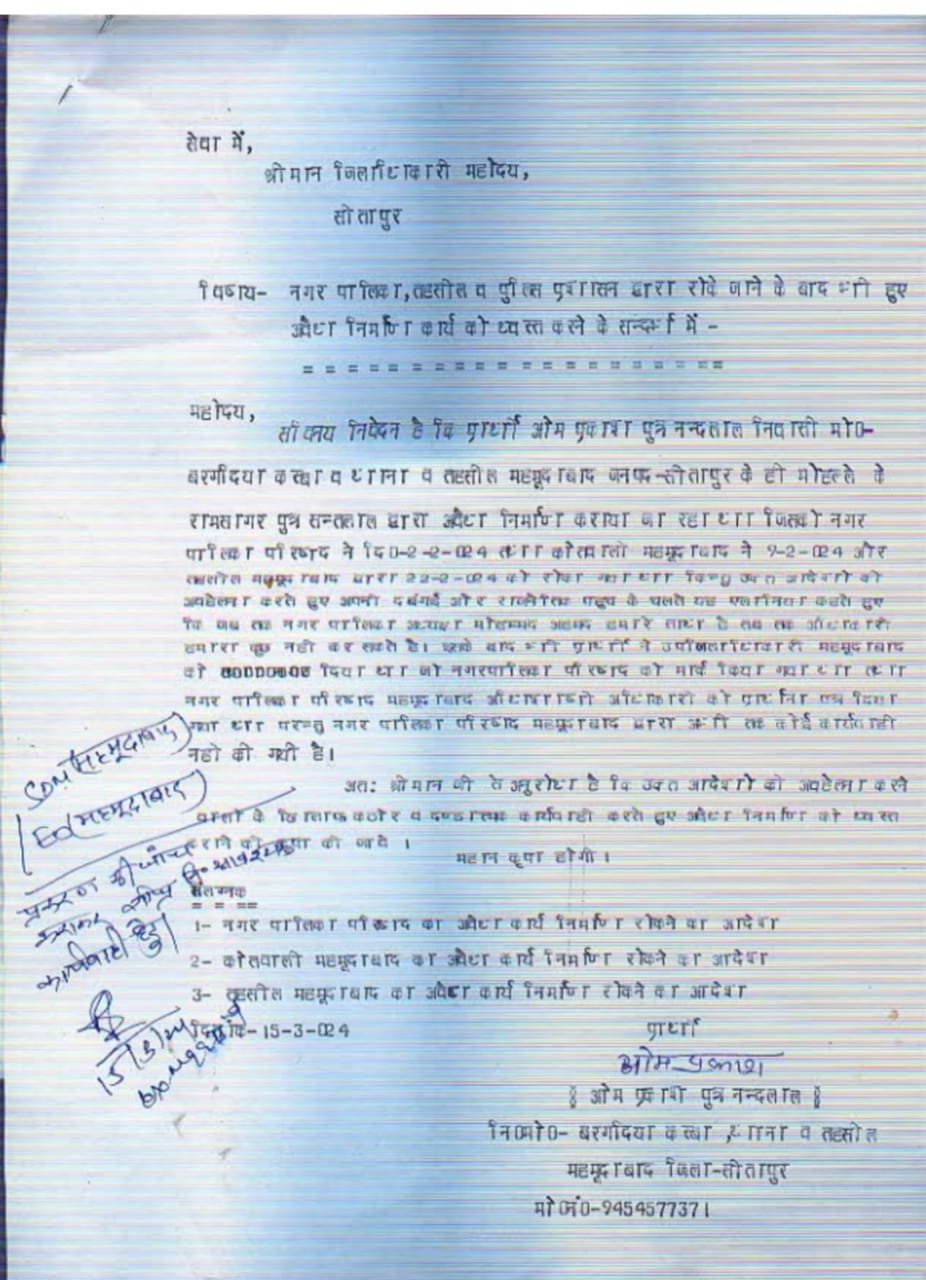 सेवा में,
श्रीमान जिलाधिकारी महोदय,
सीतापुर
विषय- नगर पालिका,तहसील व पुलिस प्रशासन द्वारा रोके जाने के बाद भी हुए
अवैध निर्माण कार्य को ध्वस्त करने के सन्दर्भ में -
= = = = = = = = = = = = = = = = = = = =
महोदय,
सविनय निवेदन है कि प्रार्थी ओम प्रकाश पुत्र नन्दलाल निवासी मो0-
बरगदिया कस्बा व थाना व तहसील महमूदाबाद जनपद-सीतापुर के ही मोहल्ले के
रामसागर पुत्र सन्तलाल द्वारा अवैध निर्माण कराया जा रहा था जिसको नगर
पालिका परिषद ने दि0-2-2-024 तथा कोतवाली महमूदाबाद ने 9-2-024 और
तहसील महमूदाबाद द्वारा 22-2-024 को रोका गया था किन्तु उक्त आदेशों की
अवहेलना करते हुए अपनी दबंगई और राजनैतिक पहुच के चलते यह एलानिया कहते हुए
कि जब तक नगर पालिका अध्यक्ष मोहम्मद अहमद हमारे साथ है तब तक अधिकारी
हमारा कुछ नही कर सकते है। इसके बाद भी प्रार्थी ने उपजिलाधिकारी महमूदाबाद
को दिया था जो नगरपालिका परिषद को मार्क किया गया था तथा
नगर पालिका परिषद महमूदाबाद अधिशाषी अधिकारी को प्रार्थना पत्र दिया
गया था परन्तु नगर पालिका परिषद महमूदाबाद द्वारा अभी तक कोई कार्यवाही
नही की गयी है।
अत: श्रीमान जी से अनुरोध है कि उक्त आदेशों की अवहेलना करने
वालों के खिलाफ कठोर व दण्डात्मक कार्यवाही करते हुए अवैध निर्माण को ध्वस्त
कराने की कृपा की जाये ।
महान कृपा होगी ।
SDM(महमूदाबाद)
EO(महमूदाबाद)
प्रकरण की जांच
कराकर शीघ्र आवश्यक
कार्यवाही हेतु
15/3/24
संलग्नक
= = = ==
1- नगर पालिका परिषद का अवैध कार्य निर्माण रोकने का आदेश
2- कोतवाली महमूदाबाद का अवैध कार्य निर्माण रोकने का आदेश
3- तहसील महमूदाबाद का अवैध कार्य निर्माण रोकने का आदेश
दिनांक-15-3-024
प्रार्थी
ओम प्रकाश
ओम प्रकाश पुत्र नन्दलाल
नि0मो0- बरगदिया कस्बा ,थाना व तहसील
महमूदाबाद जिला-सीतापुर
मो0नं0-9454577371